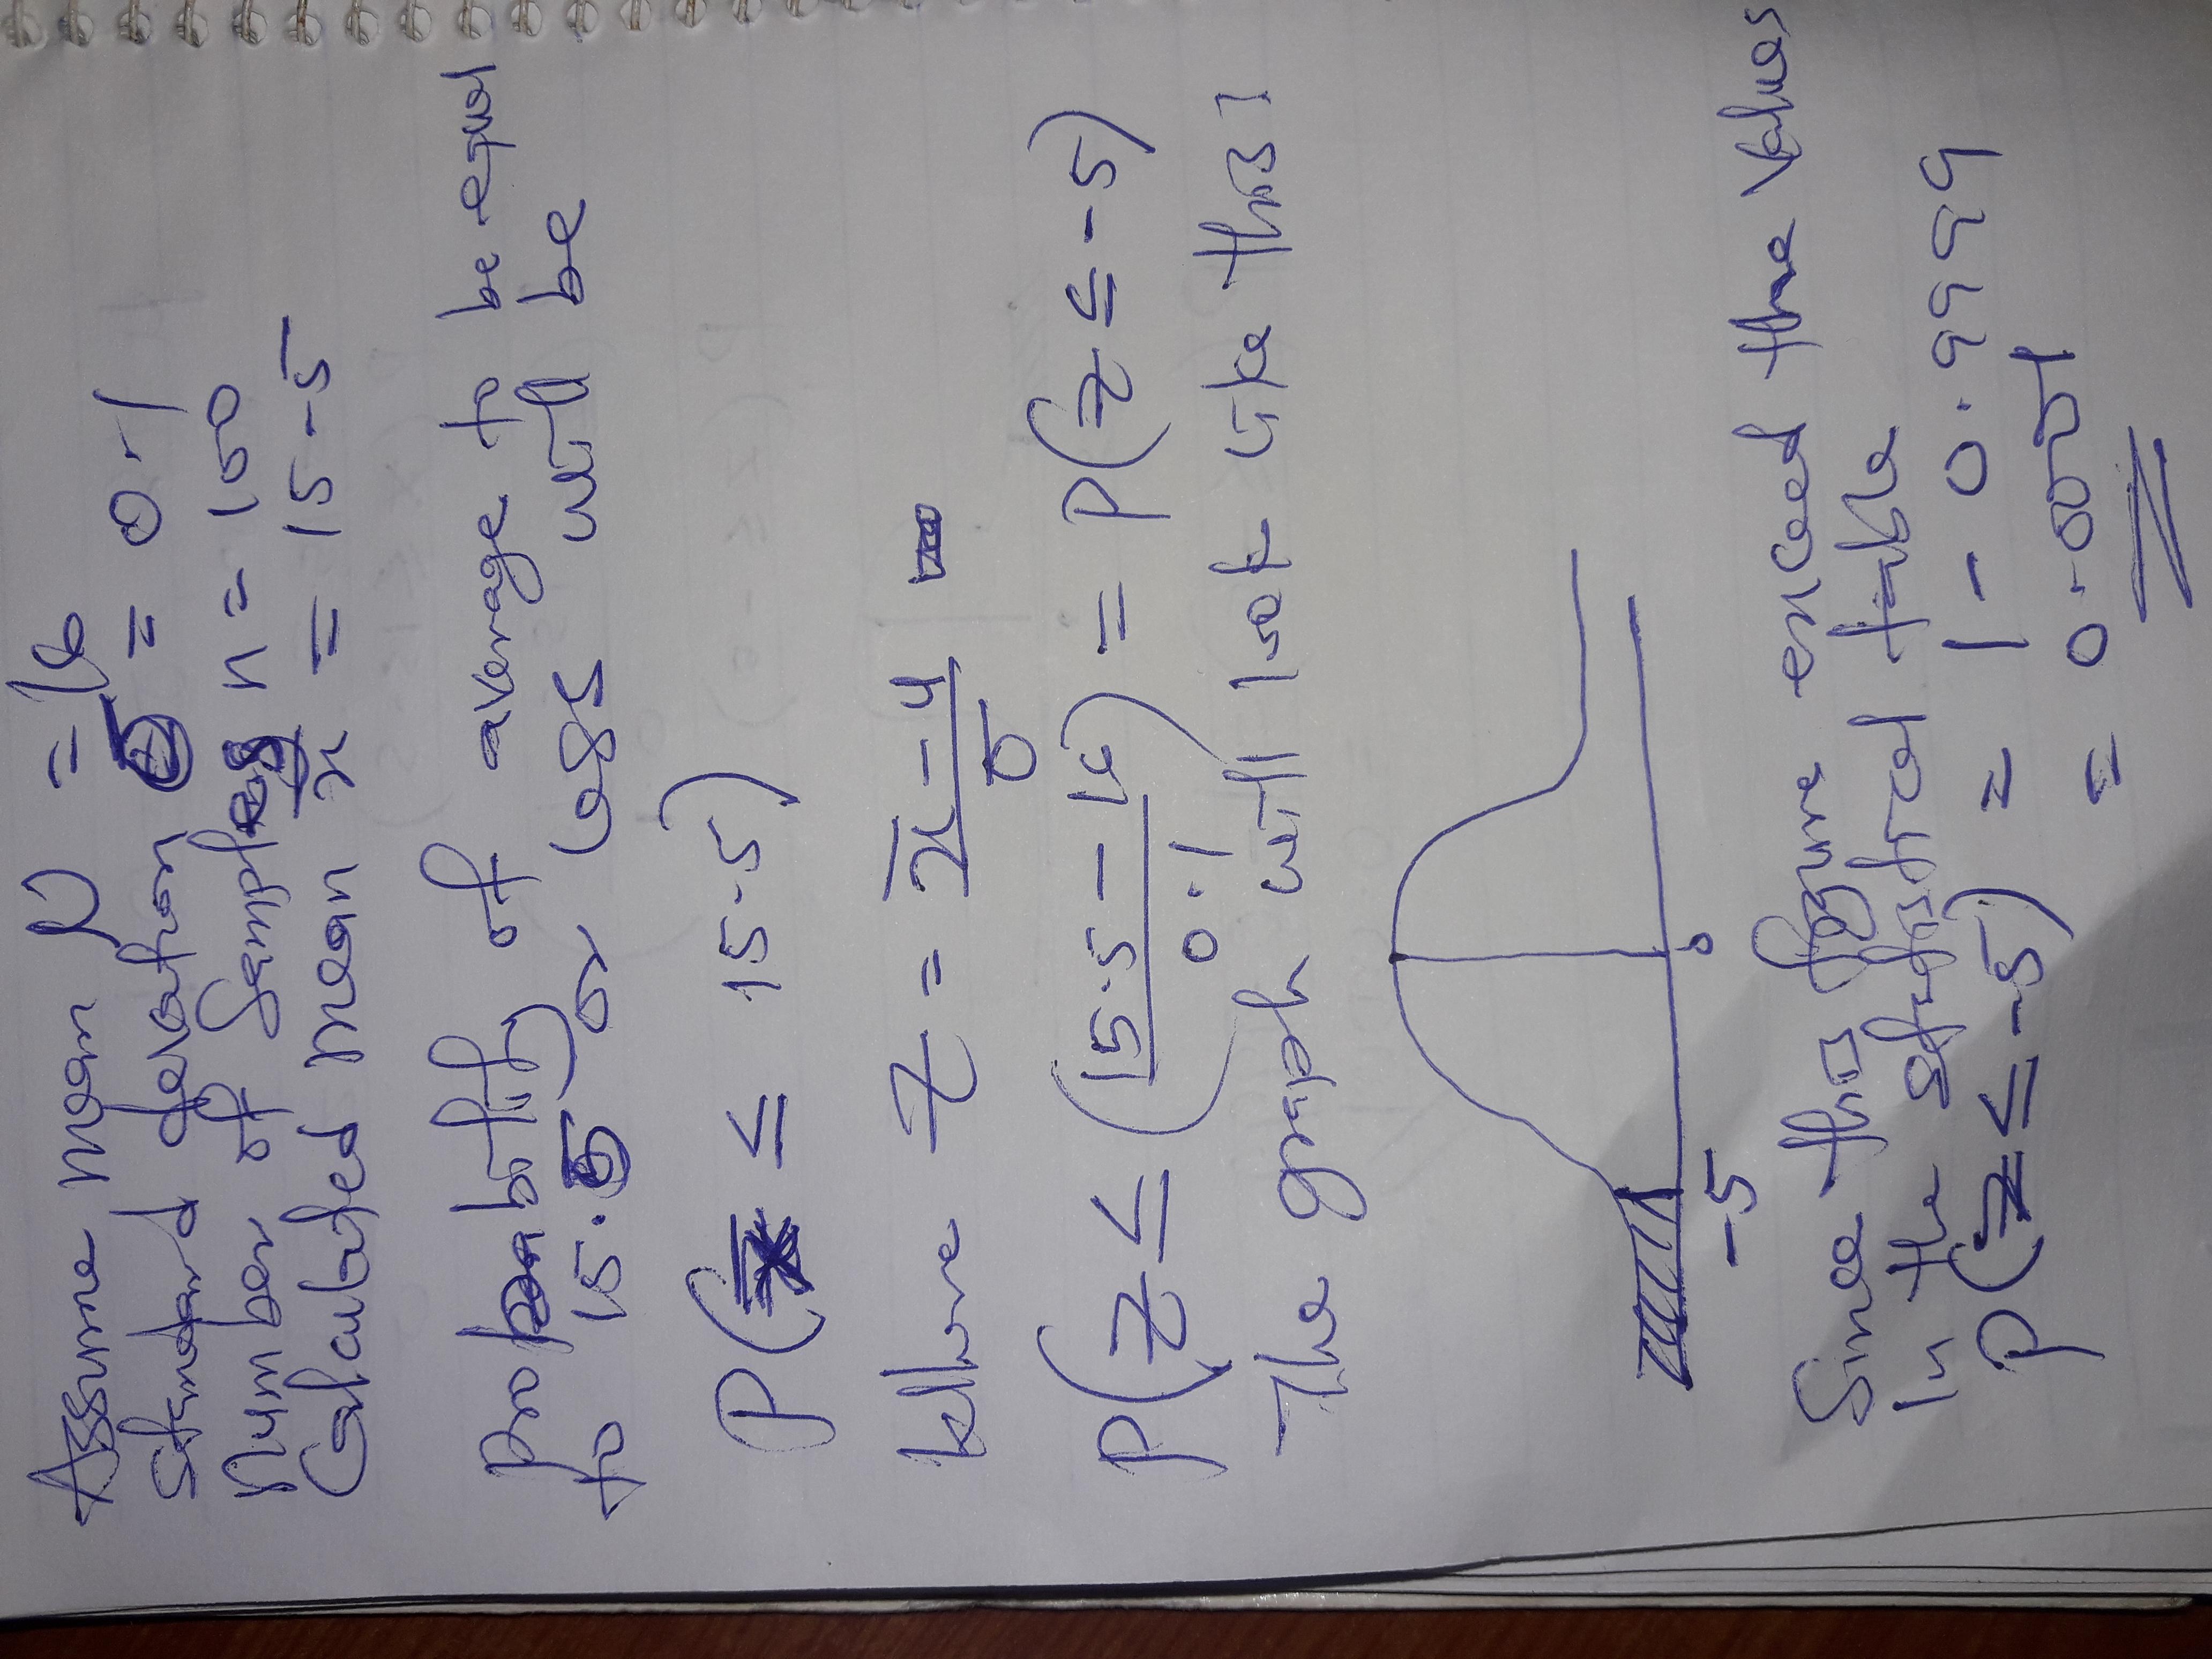 Assume mean μ = 16
standard deviation σ = 0.1
Number of Sample n = 100
Calculated mean x̄ = 15.5
probability of average to be equal
to 15.5 or less will be
P(x̄ ≤ 15.5)
where Z = x̄ - μ / σ
P(Z ≤ (15.5 - 16 / 0.1) = P(Z ≤ -5)
The graph will look like this
-5 0
Since this figure exceed the values
in the statistical table
P(Z ≤ -5) = 1 - 0.9999
= 0.0001